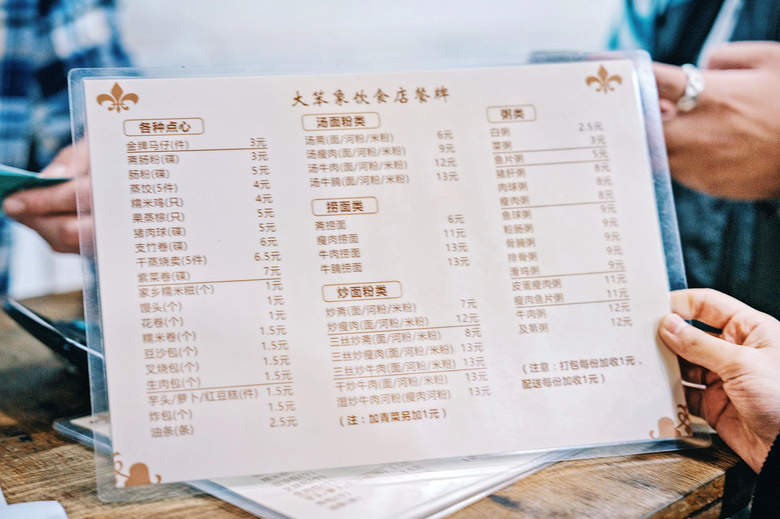 大笨象饮食店餐牌
各种点心
金牌马仔(件) 3元
斋肠粉(碟) 3元
肠粉(碟) 5元
蒸饺(5件) 4元
糯米鸡(只) 4元
果蒸粽(只) 5元
猪肉球(碟) 5元
支竹卷(碟) 6元
干蒸烧卖(5件) 6.5元
紫菜卷(碟) 7元
家乡糯米糍(个) 1元
馒头(个) 1元
花卷(个) 1元
糯米卷(个) 1.5元
豆沙包(个) 1.5元
叉烧包(个) 1.5元
生肉包(个) 1.5元
芋头/萝卜/红豆糕(件) 1.5元
炸包(个) 1.5元
油条(条) 2.5元
汤面粉类
汤斋(面/河粉/米粉) 6元
汤瘦肉(面/河粉/米粉) 9元
汤牛肉(面/河粉/米粉) 12元
汤牛腩(面/河粉/米粉) 13元
捞面类
斋捞面 6元
瘦肉捞面 11元
牛肉捞面 13元
牛腩捞面 13元
炒面粉类
炒斋(面/河粉/米粉) 7元
炒瘦肉(面/河粉/米粉) 12元
三丝炒(面/河粉/米粉) 8元
三丝炒瘦肉(面/河粉/米粉) 13元
三丝炒牛肉(面/河粉/米粉) 13元
干炒牛肉(面/河粉/米粉) 13元
湿炒牛肉河粉(瘦肉河粉) 13元
(注：加青菜另加1元)
粥类
白粥 2.5元
菜粥 3元
鱼片粥 5元
猪肝粥 8元
肉球粥 8元
瘦肉粥 8元
鱼球粥 9元
粉肠粥 9元
骨腩粥 9元
排骨粥 9元
滑鸡粥 9元
皮蛋瘦肉粥 11元
瘦肉鱼片粥 11元
牛肉粥 12元
及第粥 12元
(注意：打包每份加收1元，
配送每份加收1元)